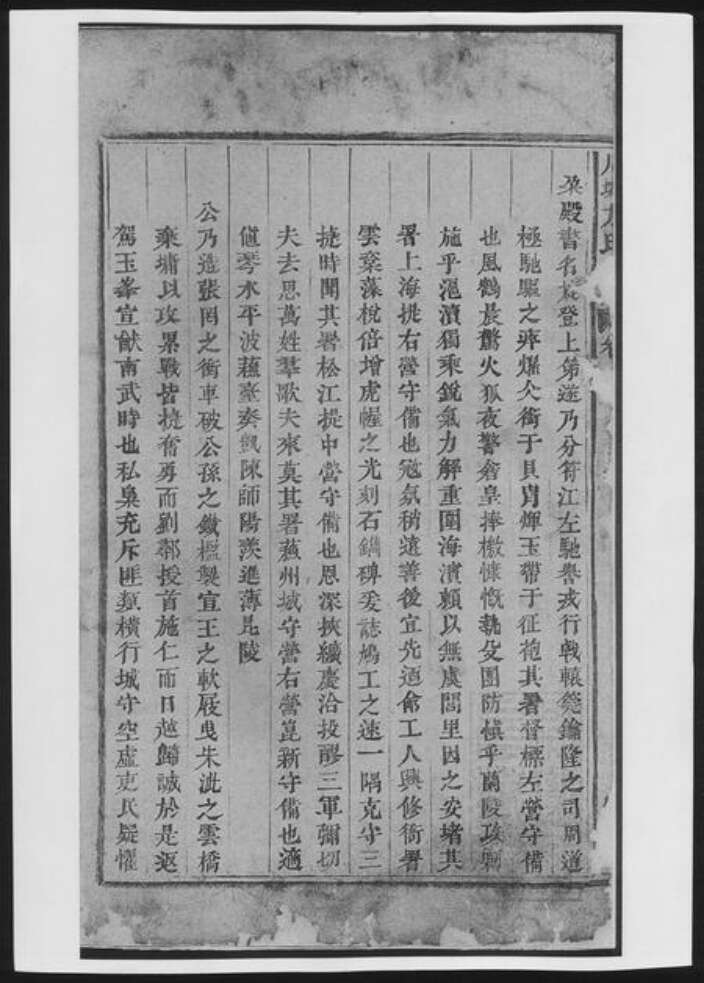 殿書名 登上第遂乃分符江左馳譽戎行戟轅筦鑰隆之司周道
極馳驅之 燦父銜于貝胄輝玉帶于征袍其署督標左營守備
也風鶴晨驚火狐夜警奮皇捧檄慷慨執殳團防慎乎蘭陵攻剿
施乎滬瀆獨乘銳氣力解重圍海濱賴以無虞閭里因之安堵其
署上海提右營守備也寇氛稍遠善後宜先迺命工人興修衙署
雲棄藻梲倍增虎幄之光刻石鐫碑爰誌鳩工之速一隅克守三
捷時聞其署松江提中營守備也恩深挾纊慶洽投醪三軍彌切
夫去思萬姓羣歌夫來莫其署蘇州城守營右營崑新守備也適
値琴水平波蘓臺奏凱陳師陽羨進薄毘陵
公乃造張罔之衝車破公孫之鐵櫳製宣王之軟屐曳朱泚之雲橋
乘墉以攻累戰皆捷奮勇而劉鄩授首施仁而日越歸誠於是返
駕玉峯宣猷南武時也私梟充斥匪類橫行城守空虛吏民疑懼